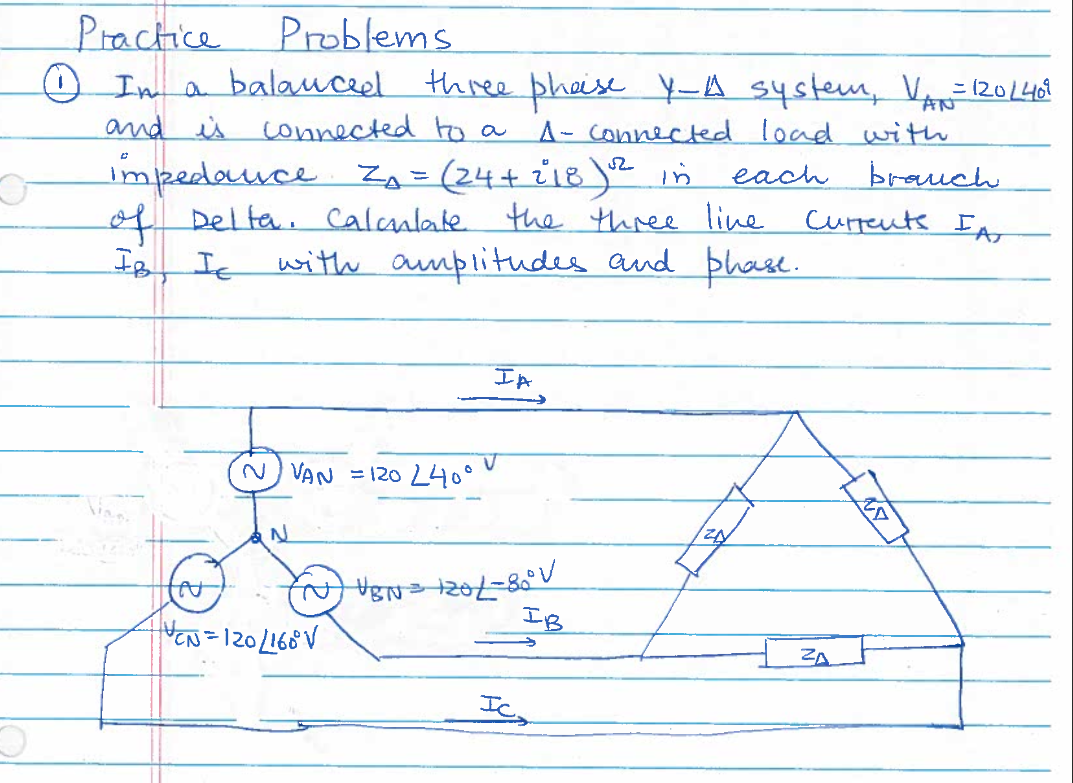 Practice Problems
① In a balanced three phase Y-Δ system, V_AN = 120∠40°
and is connected to a Δ-connected load with
impedance Z_Δ = (24 + i18)Ω in each branch
of Delta. Calculate the three line currents I_A,
I_B, I_C with amplitudes and phase.
I_A
V_AN = 120∠40° V
N
Z_Δ
Z_Δ
V_BN = 120∠-80° V
I_B
V_CN = 120∠160° V
Z_Δ
I_C